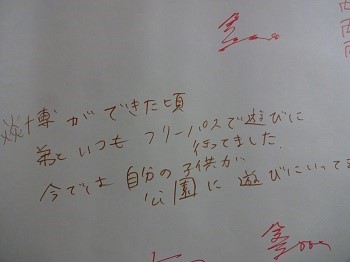 博ができた頃
弟といつもフリーパスで遊びに
行ってました。
今では自分の子供が
公園に遊びにいってま